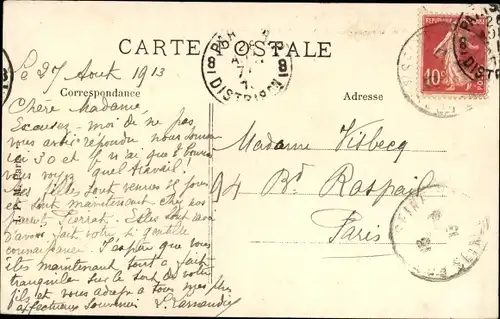 CARTE POSTALE
Le 27 Aout 1913
Correspondance
Adresse
Chère Madame,
Excusez-moi de ne pas
vous avoir répondu nous sommes
ici 30 et je n'ai que
vous voyez quel travail!
filles sont venues
et sont maintenant chez nos
parents Elles sont
d'avoir fait votre si gentille
connaissance. J'espère que vous
êtes maintenant tout a fait
tranquille sur le sort de votre
fils et vous adresse a tous mes plus
affectueux souvenirs
Madame Visbecq
94 Bd Raspail
Paris
POSTES
10c
PARIS
8 8
DISTRIBUTION